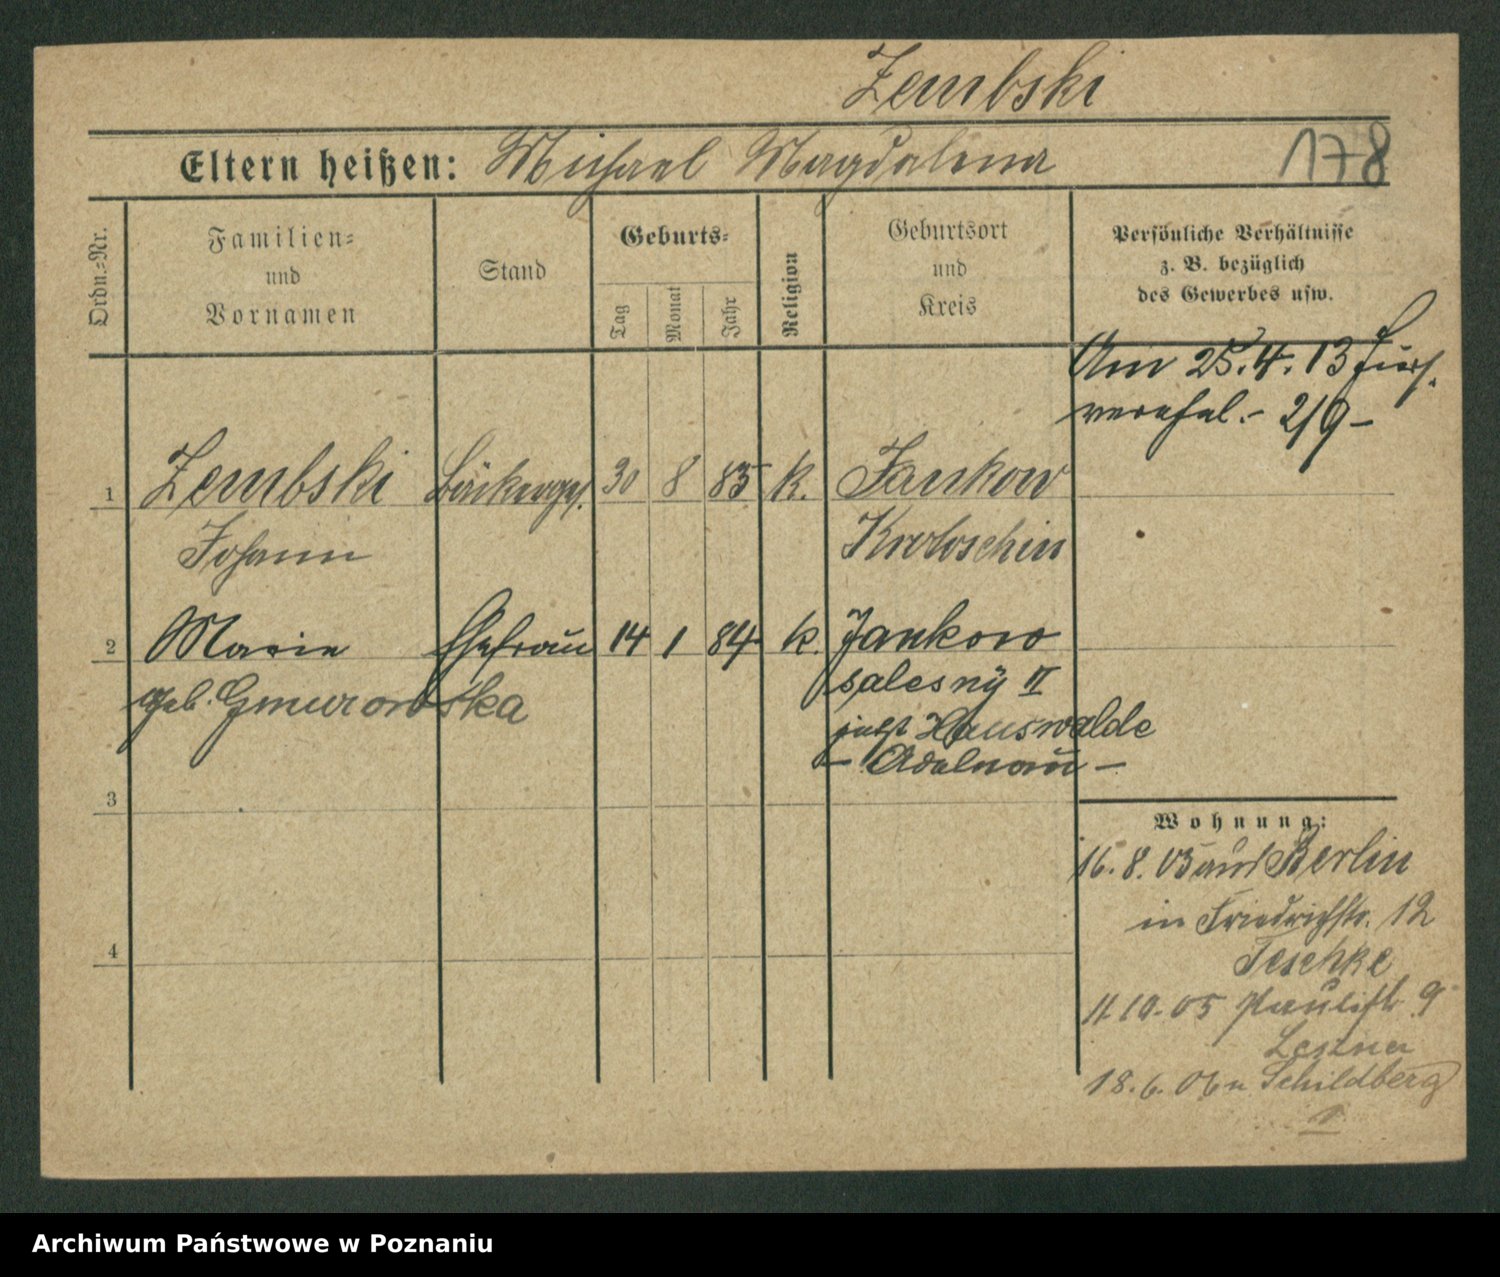 Zembski
Eltern heißen: Michael Magdalena
178
Ordn.-Nr.
Familien-
und
Vornamen
Stand
Geburts-
Tag
Monat
Jahr
Religion
Geburtsort
und
Kreis
Persönliche Verhältnisse
z. B. bezüglich
des Gewerbes usw.
Am 25.4.13
2/9 –
1 Zembski Bäckerges. 30 8 85 k. Jankow
Johann Krotoschin
2 Marie Ehefrau 14 1 84 k. Jankow
geb. Gmurowska salesny II
jetzt Hauswalde
– Adelnau –
3
4
Wohnung:
16. 8. 05 aus Berlin
in Friedrichstr. 12
Teschke
11 10. 05 Paulistr 9
18. 6. 06 n Schildberg